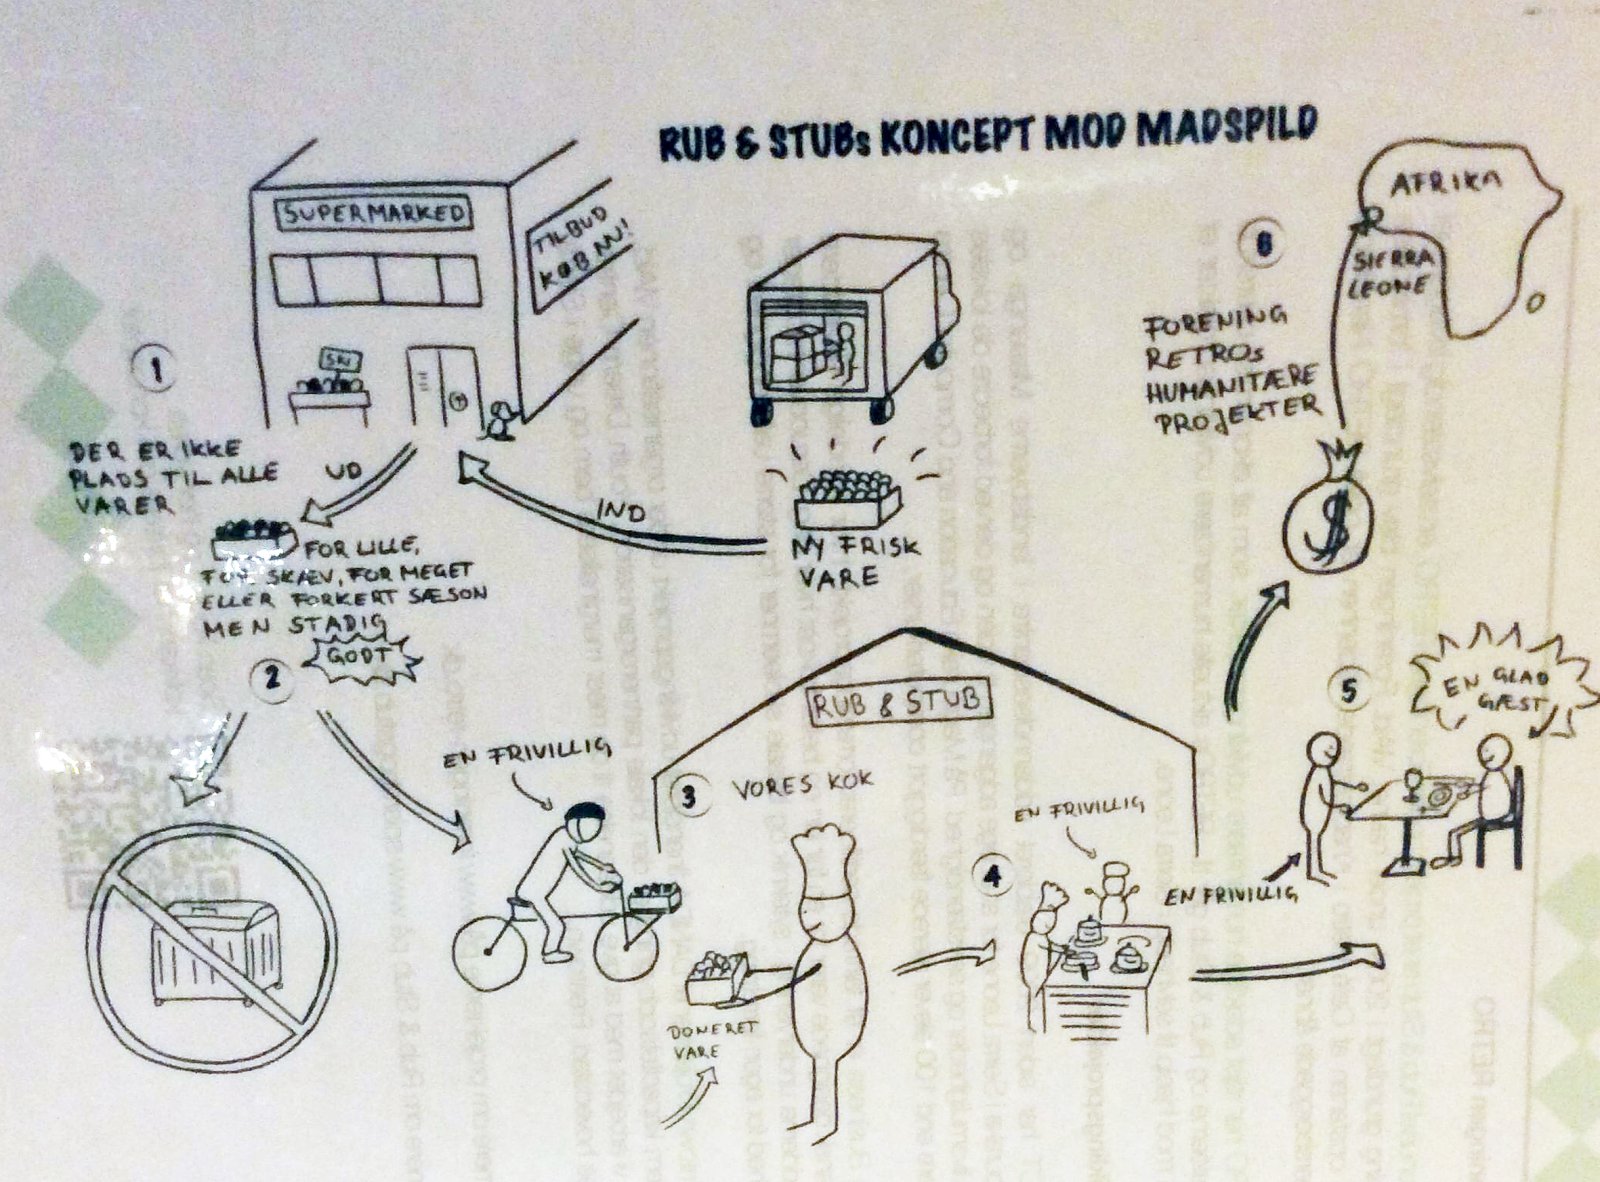 RUB & STUBs KONCEPT MOD MADSPILD
SUPERMARKED
TILBUD
KØB NU!
1
DER ER IKKE
PLADS TIL ALLE
VARER
UD
IND
NY FRISK
VARE
FOR LILLE,
FOR SKÆV, FOR MEGET
ELLER FORKERT SÆSON
MEN STADIG
GODT
2
EN FRIVILLIG
RUB & STUB
3
VORES KOK
DONERET
VARE
4
EN FRIVILLIG
5
EN GLAD
GÆST
EN FRIVILLIG
6
FORENING
RETROs
HUMANITÆRE
PROJEKTER
AFRIKA
SIERRA
LEONE
$